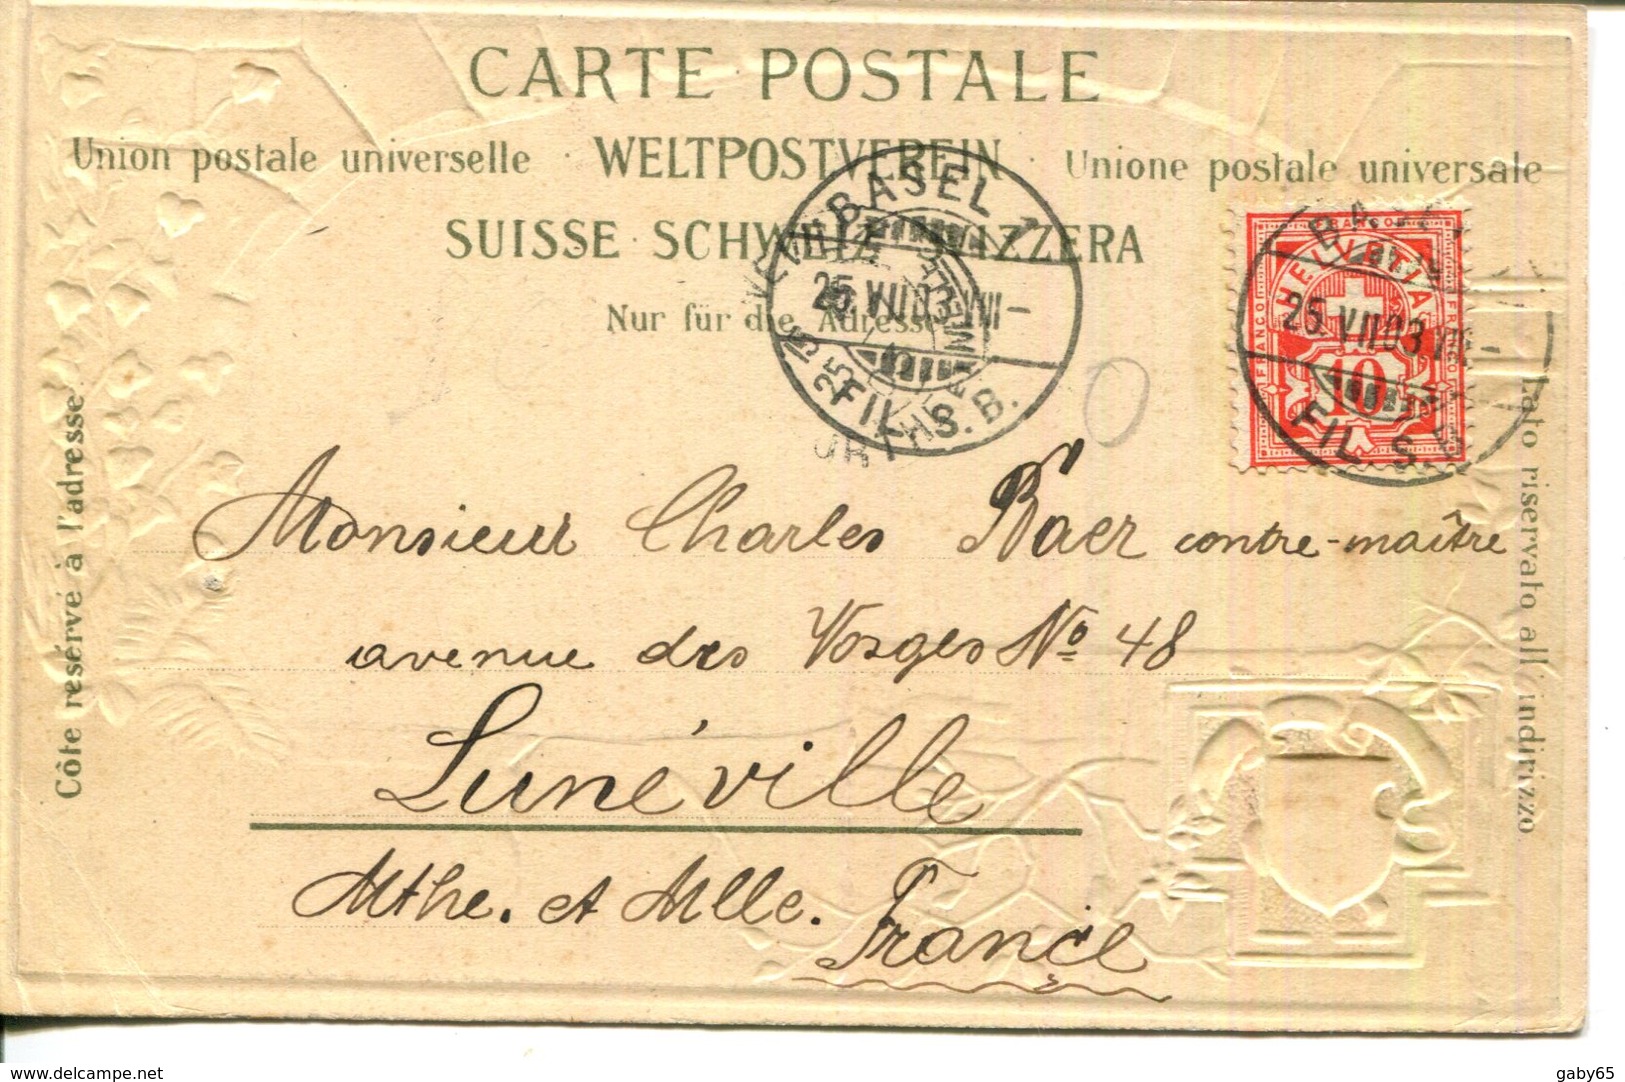 CARTE POSTALE
Union postale universelle · WELTPOSTVEREIN · Unione postale universale
SUISSE · SCHWEIZ · SVIZZERA
Nur für die Adresse
Côte resérvé à l'adresse
Lato riservato all' indirizzo
BASEL
25.VII.03.VIII-
FIL. S.B.
FRANCO
HELVETIA
FRANCO
FRANCO
10
BASEL
25.VII.03.VIII-
FIL. S.B.
Monsieur Charles Baer contre-maître
avenue des Vosges No 48
Lunéville
Mthe. et Mlle.
France
www.delcampe.net
gaby65